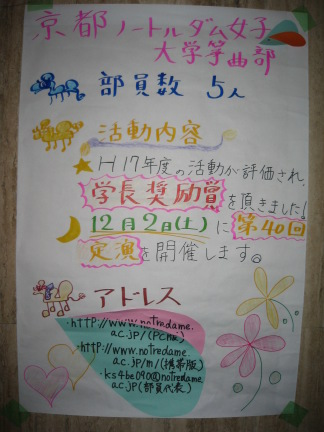 京都ノートルダム女子
大学箏曲部
部員数 5人
活動内容
H17年度の活動が評価され、
学長奨励賞を頂きました!
12月2日(土)に第40回
定演を開催します。
アドレス
・http://www.notredame.
ac.jp/(PC版)
・http://www.notredame.
ac.jp/m/(携帯版)
・ks4be090@notredame.
ac.jp(部員代表)